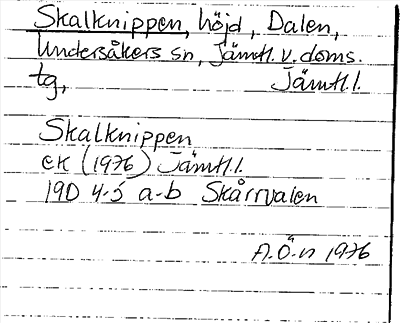 Skalknippen, höjd, Dalen,
Undersåkers sn, Jämtl. v. doms.
tg, Jämtl. l.
Skalknippen
ek (1976) Jämtl. l.
19D 4-5 a-b Skårrvalen
A.Ö-n 1976